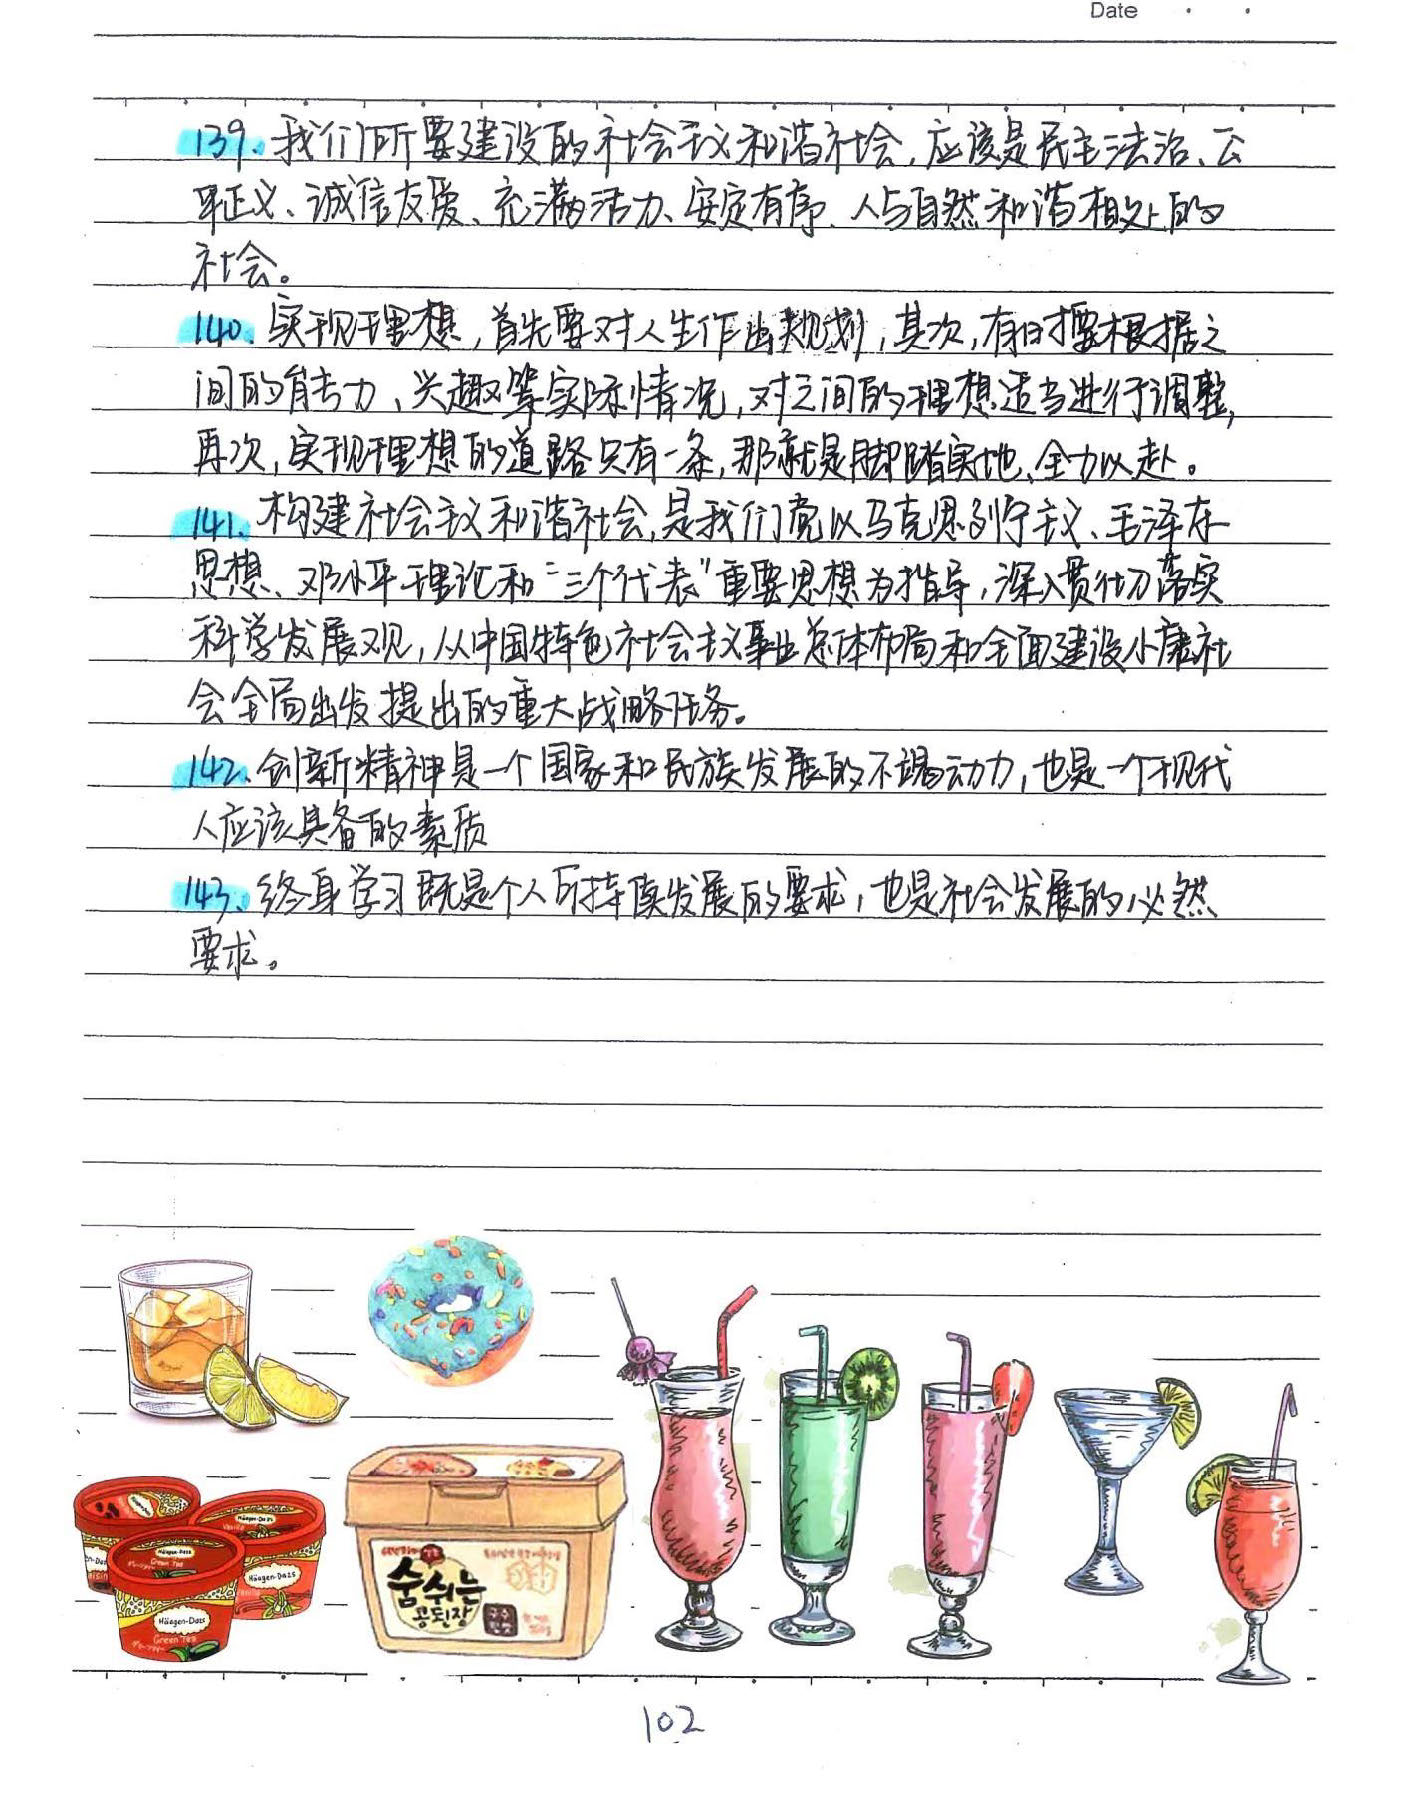 Date
139. 我们所要建设的社会主义和谐社会, 应该是民主法治、公
平正义、诚信友爱、充满活力、安定有序、人与自然和谐相处的
社会。
140. 实现理想, 首先要对人生作出规划, 其次, 有时要根据之
间的能力、兴趣等实际情况, 对之间的理想适当进行调整,
再次, 实现理想的道路只有一条, 那就是脚踏实地、全力以赴。
141. 构建社会主义和谐社会, 是我们党以马克思列宁主义、毛泽东
思想、邓小平理论和“三个代表”重要思想为指导, 深入贯彻落实
科学发展观, 从中国特色社会主义事业总体布局和全面建设小康社
会全局出发提出的重大战略任务。
142. 创新精神是一个国家和民族发展的不竭动力, 也是一个现代
人应该具备的素质
143. 终身学习既是个人可持续发展的要求, 也是社会发展的必然
要求。
Häagen-Dazs
Green Tea
Häagen-Dazs
Vanilla
Häagen-Dazs
Häagen-Dazs
Green Tea
숨쉬는
콩된장
102